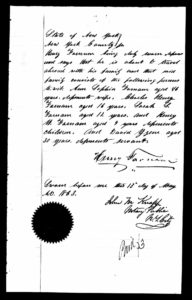 State of New York
New York County ss
Henry Farnam being duly sworn deposes
and says that he is about to travel
abroad with his family and that said
family consists of the following persons
to wit Ann Sophia Farnam aged 44
years deponents wife. Charles Henry
Farnam aged 16 years. Sarah S.
Farnam aged 12 years. and Henry
W. Farnam aged 9 years deponents
children. And David
31 years deponents servant.
Henry Farnam
Sworn before me this 15 day of May
A.D. 1863.
John
Notary Public
N.Y. City